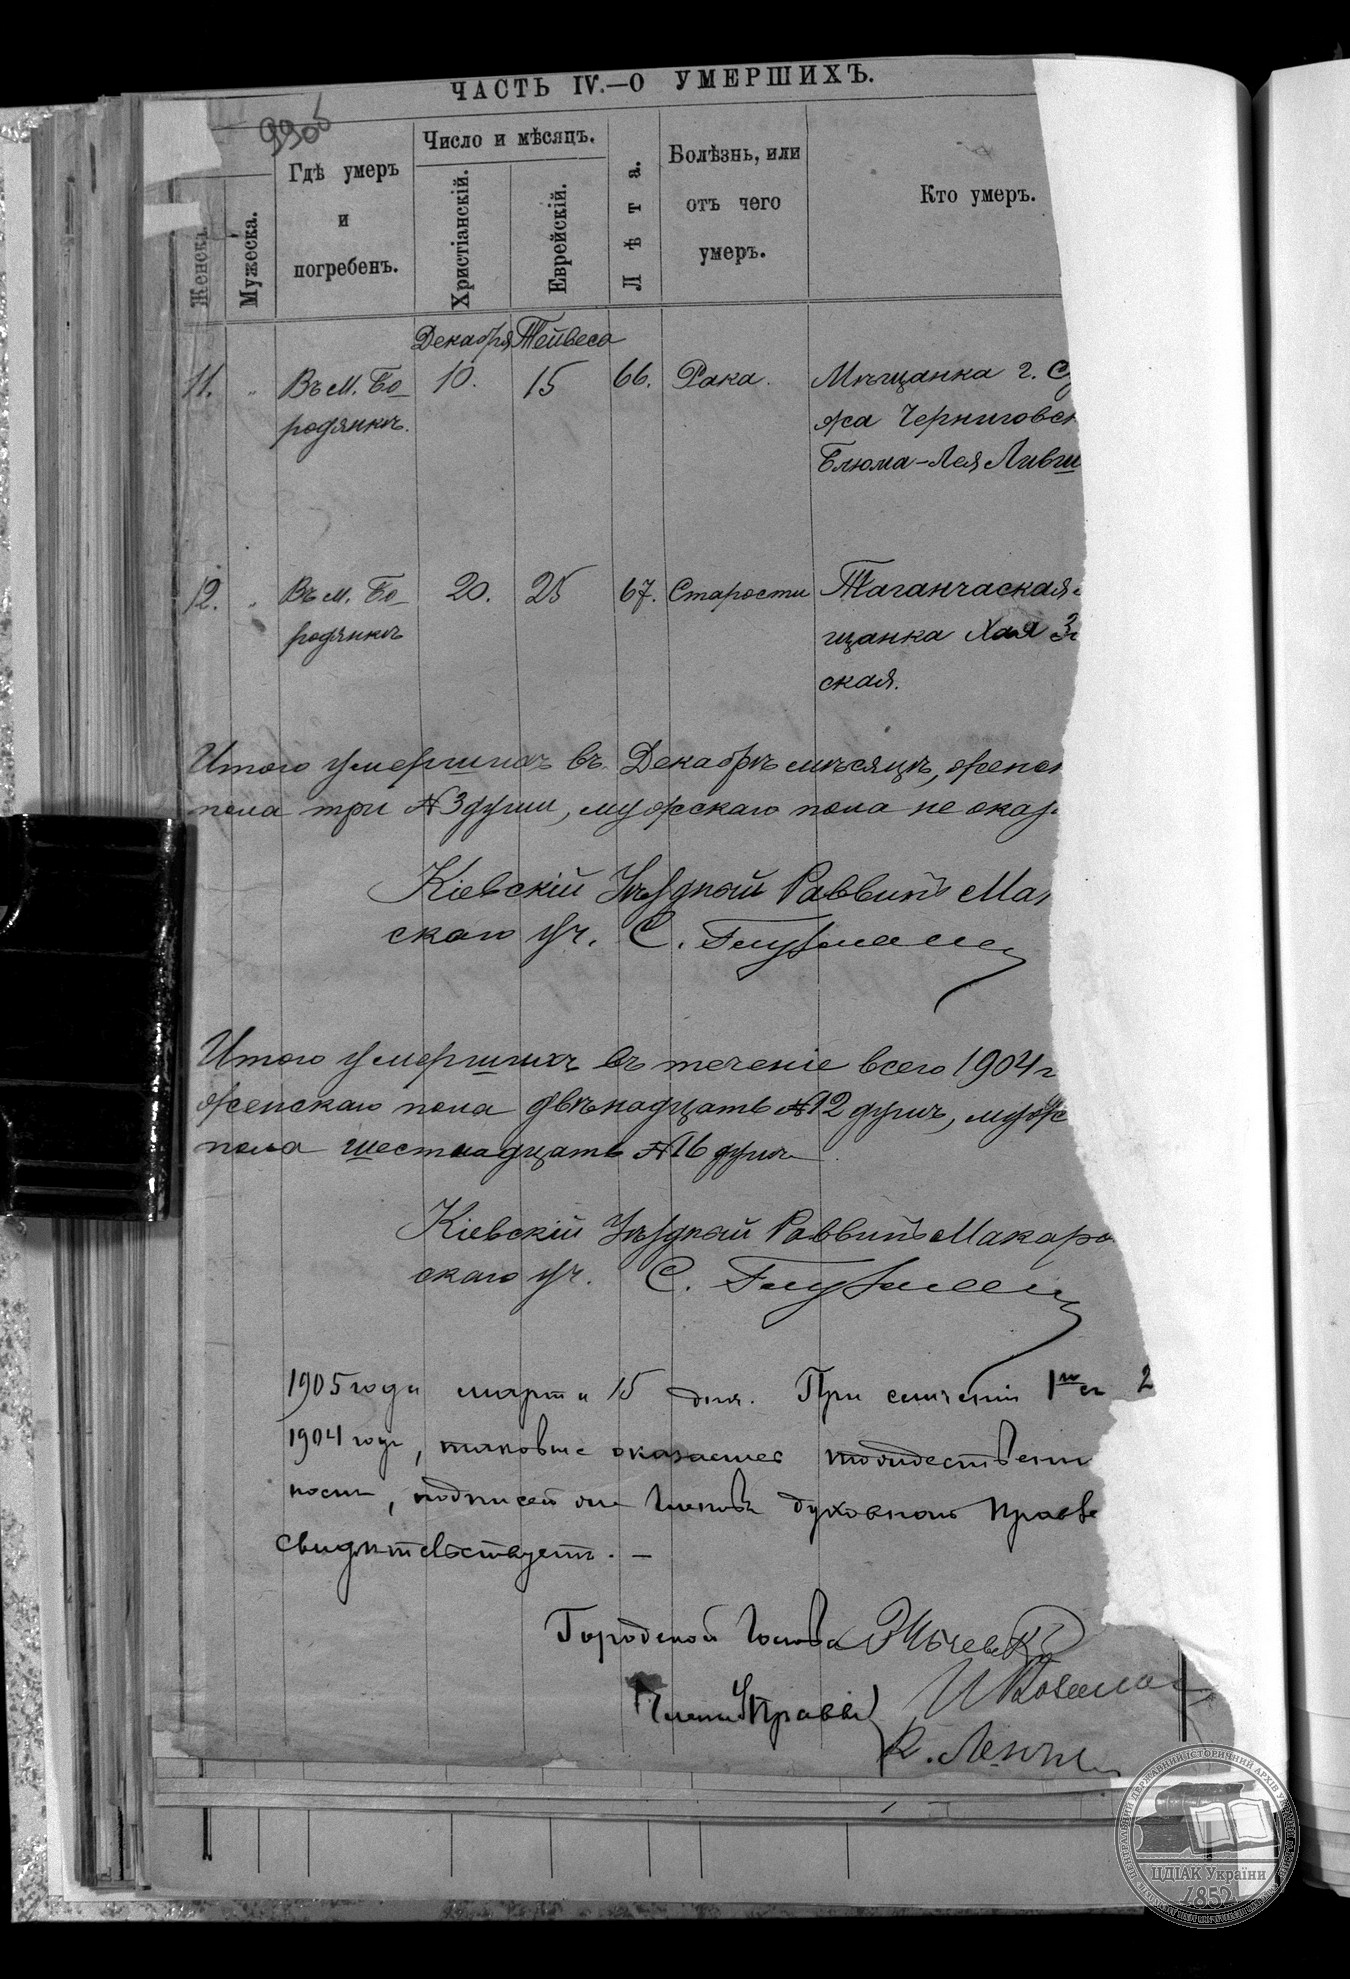 ЧАСТЬ IV.—О УМЕРШИХЪ.
99об
Женска.
Мужеска.
Гдѣ умеръ
и
погребенъ.
Число и мѣсяцъ.
Христіанскій.
Еврейскій.
Лѣта.
Болѣзнь, или
отъ чего
умеръ.
Кто умеръ.
Декабря Тейвеса
11. " Въ м. Бо- 10. 15 66. Рака. Мѣщанка г. С
родянкѣ. жа Черниговск
Блюма-Лея Ливш
12. " Въ м. Бо- 20. 25 67. Старости Таганчаская
родянкѣ щанка Хая З
ская.
Итого умершихъ въ Декабрѣ мѣсяцѣ, женск
пола три №3 души, мужскаго пола не оказ
Кіевскій Уѣздный Раввинъ Мак
скаго уч. С. Глузман
Итого умершихъ въ теченіе всего 1904 г
женскаго пола двѣнадцать №12 душъ, муж
пола шестнадцать №16 душъ
Кіевскій Уѣздный Раввинъ Макаро
скаго уч. С. Глузман
1905 года марта 15 дня. При сличеніи 1го 2
1904 годъ, таковые оказались тождественн
ности, подписей Голова духовнаго
свидѣтельствуетъ. —
Городской Голова
Члены Управы
ЦЕНТРАЛЬНИЙ ДЕРЖАВНИЙ ІСТОРИЧНИЙ АРХІВ УКРАЇНИ
ЦДІАК України
1852